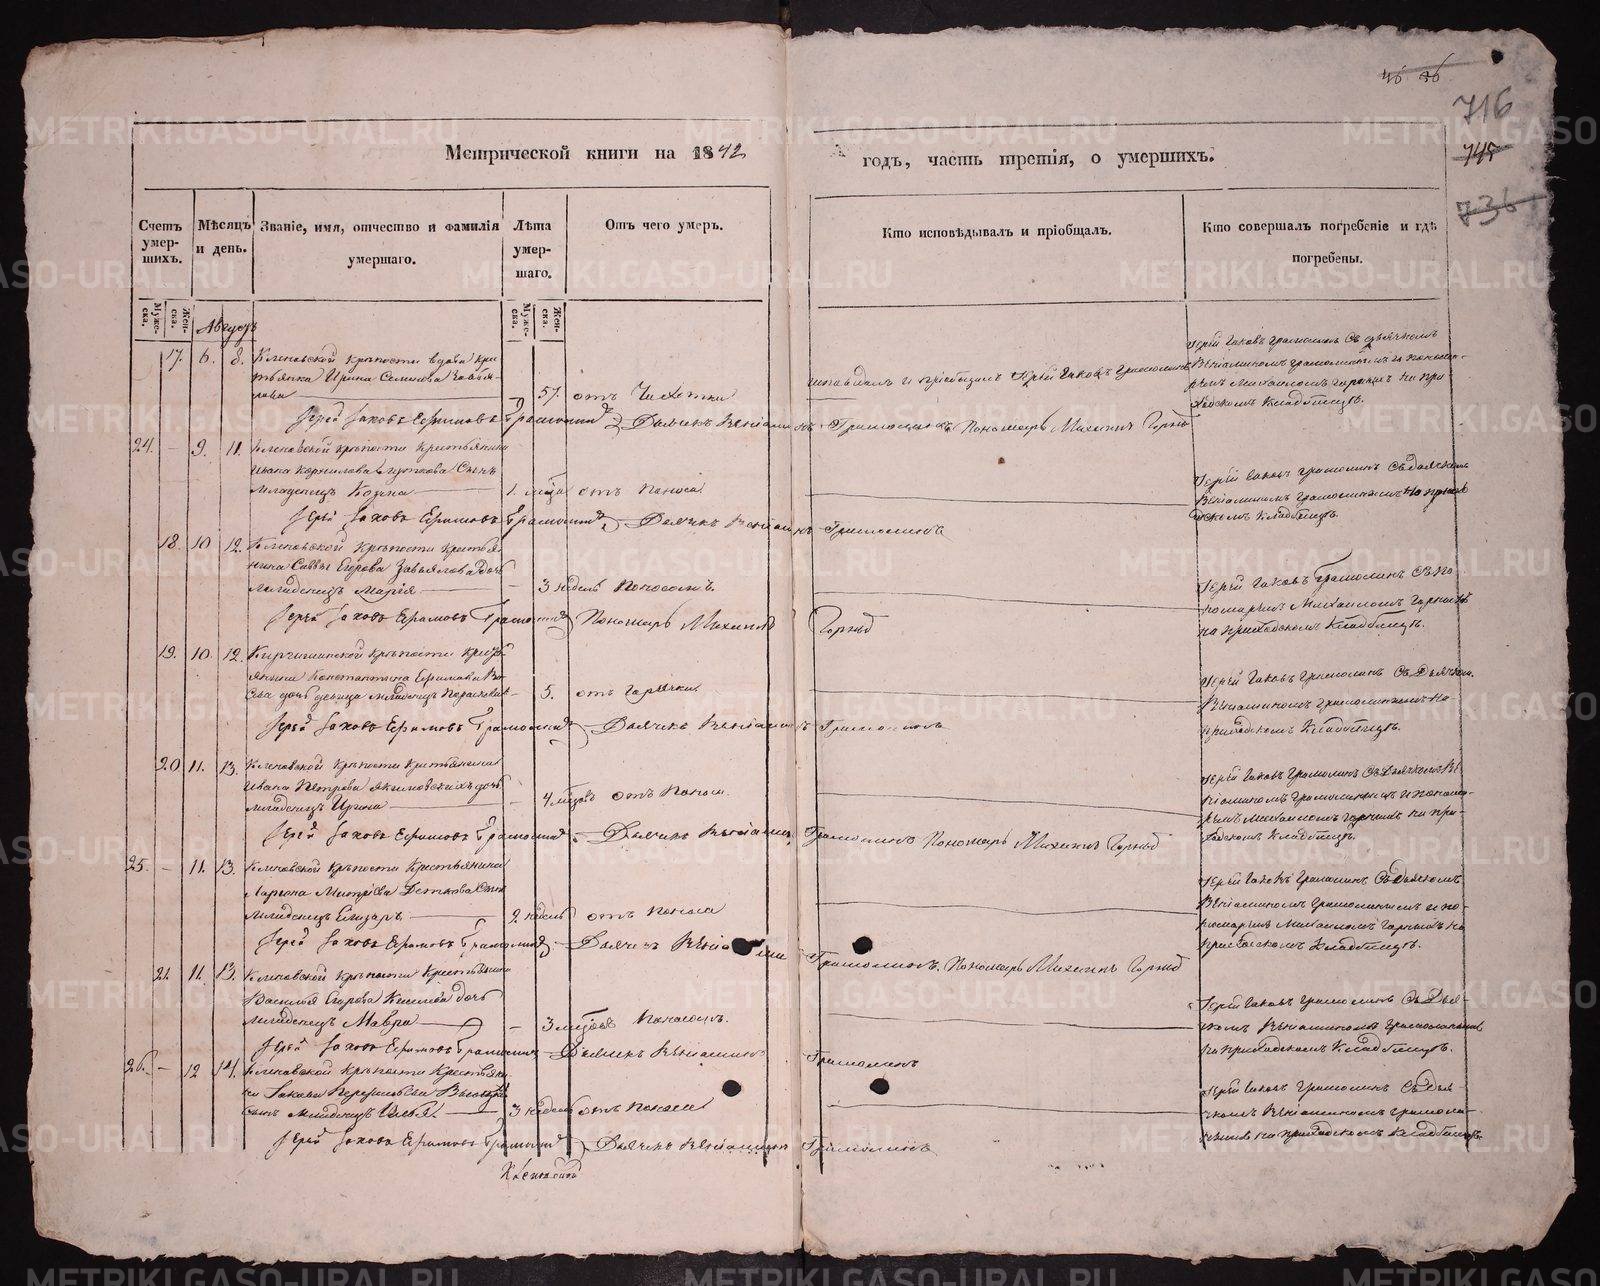 46 36
716
745
736
Метрической книги на 1842
годъ, часть третія, о умершихъ.
Счетъ умер-шихъ.
Мѣсяцъ и день.
Званіе, имя, отчество и фамилія умершаго.
Лѣта умер-шаго.
Отъ чего умеръ.
Кто исповѣдывалъ и пріобщалъ.
Кто совершалъ погребеніе и гдѣ погребены.
Муже-ска.
Жен-ска.
Муже-ска.
Жен-ска.
Августъ
17. 6. 8. Кленовской крѣпости вдова кре-
стьянка Ирина Семенова
57. отъ Чихотки
исповѣдалъ и пріобщилъ Іерей Іаковъ Грамолинъ
Іерей Іаковъ Грамолинъ Съ дьячкомъ
Веніаминомъ Грамолинымъ и понома-
ремъ Михаиломъ на при-
ходскомъ Кладбищѣ.
Іерей Іаковъ Ефимовъ Грамолинъ Дьячекъ Веніаминъ Грамолинъ Пономарь Михаилъ
24. — 9. 11. Кленовской крѣпости Крестьянина
Ивана Корнилова Сынъ
Младенецъ Козма
1. мѣсяца отъ Поноса
Іерей Іаковъ Грамолинъ Съ дьячкомъ
Веніаминомъ Грамолинымъ на приход-
скомъ Кладбищѣ.
Іерей Іаковъ Ефимовъ Грамолинъ Дьячекъ Веніаминъ Грамолинъ
18. 10 12. Кленовской Крѣпости Крестья-
нина Саввы Егорова Завьялова дочь
Младенецъ Марія
— 3 недѣль Поносомъ.
Іерей Іаковъ Грамолинъ Съ По-
номаремъ Михаиломъ
на приходскомъ Кладбищѣ.
Іерей Іаковъ Ефимовъ Грамолинъ Пономарь Михаилъ
19. 10. 12. Киргишанской Крѣпости Кресть-
янина Константина Ефимова
дочь девица младенецъ Параскевия
— 5. отъ Горячки
Іерей Іаковъ Грамолинъ Съ Дьячком
Веніаминомъ Грамолинымъ на
приходскомъ Кладбищѣ.
Іерей Іаковъ Ефимовъ Грамолинъ Дьячекъ Веніаминъ Грамолинъ
20 11. 13. Кленовской крѣпости Крестьянина
Ивана Петрова Якимовскихъ дочь
младенецъ Ирина
— 4 мѣсяцовъ отъ Поноса.
Іерей Іаковъ Грамолинъ Съ Дьячкомъ Ве-
ніаминомъ Грамолинымъ и понома-
ремъ Михаиломъ на при-
ходскомъ Кладбищѣ.
Іерей Іаковъ Ефимовъ Грамолинъ Дьячекъ Веніаминъ Грамолинъ Пономарь Михаилъ
25. — 11. 13. Кленовской Крѣпости Крестьянина
Лариона Митріева Деткова Сынъ
Младенецъ Елизаръ
2 недѣль отъ поноса
Іерей Іаковъ Грамолинъ Съ Дьячкомъ
Веніаминомъ Грамолинымъ и по-
номаремъ Михаиломъ на
приходскомъ Кладбищѣ.
Іерей Іаковъ Ефимовъ Грамолинъ Дьячекъ Веніаминъ Грамолинъ. Пономарь Михаилъ
21. 11. 13. Кленовской Крѣпости Крестьянина
Василья Егорова дочь
младенецъ Мавра
— 3 мѣсяцовъ Поносомъ.
Іерей Іаковъ Грамолинъ Съ Дьяч-
комъ Веніаминомъ Грамолинымъ
на приходскомъ Кладбищѣ.
Іерей Іаковъ Ефимовъ Грамолинъ Дьячекъ Веніаминъ Грамолинъ
26. — 12 14. Кленовской Крѣпости Крестьяни-
на Іакова
сынъ младенецъ Илья
3 недѣль отъ поноса
Іерей Іаковъ Грамолинъ Съ дья-
чкомъ Веніаминомъ Грамоли-
нымъ на приходскомъ Кладбищѣ.
Іерей Іаковъ Ефимовъ Грамолинъ Дьячекъ Веніаминъ Грамолинъ
METRIKI.GASO-URAL.RU